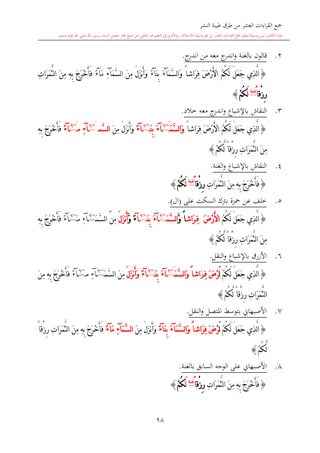 جمع القراءات العشر من طرق طيبة النشر
٢. قالون بالغنة واندرج معه من اندرج.
﴿ الَّذِي جَعَلَ لَكُمُ الْأَرْضَ فِرَاشاً وَالسَّمَآءَ بِنَآءً وَأَنزَلَ مِنَ السَّمَآءِ مَآءً فَأَخْرَجَ بِهِ مِنَ الثَّمَرَاتِ
رِزْقاً لَكُمْ ﴾
٣. النقاش بالإشباع واندرج معه خلاد.
﴿ الَّذِي جَعَلَ لَكُمُ الْأَرْضَ فِرَاشاً وَالسَّمَآءَ بِنَآءً وَأَنزَلَ مِنَ السَّمَآءِ مَآءً فَأَخْرَجَ بِهِ
مِنَ الثَّمَرَاتِ رِزْقاً لَّكُمْ ﴾
٤. النقاش بالإشباع والغنة.
﴿ فَأَخْرَجَ بِهِ مِنَ الثَّمَرَاتِ رِزْقاً لَكُمْ ﴾
٥. خلف عن حمزة بترك السكت على (ال).
﴿ الَّذِي جَعَلَ لَكُمُ الْأَرْضَ فِرَاشاً وَالسَّمَآءَ بِنَآءً وَأَنزَلَ مِنَ السَّمَآءِ مَآءً فَأَخْرَجَ بِهِ
مِنَ الثَّمَرَاتِ رِزْقاً لَّكُمْ ﴾
٦. الأزرق بالإشباع والنقل.
﴿ الَّذِي جَعَلَ لَكُمُ لَرْضَ فِرَاشاً وَالسَّمَآءَ بِنَآءً وَأَنزَلَ مِنَ السَّمَآءِ مَآءً فَأَخْرَجَ بِهِ مِنَ
الثَّمَرَاتِ رِزْقاً لَّكُمْ ﴾
٧. الأصبهاني بتوسط المتصل والنقل.
﴿ الَّذِي جَعَلَ لَكُمُ لَرْضَ فِرَاشاً وَالسَّمَآءَ بِنَآءً وَأَنزَلَ مِنَ السَّمَآءِ مَآءً فَأَخْرَجَ بِهِ مِنَ الثَّمَرَاتِ رِزْقاً
لَّكُمْ ﴾
٨. الأصبهاني على الوجه السابق بالغنة.
﴿ فَأَخْرَجَ بِهِ مِنَ الثَّمَرَاتِ رِزْقاً لَكُمْ ﴾
٩٨